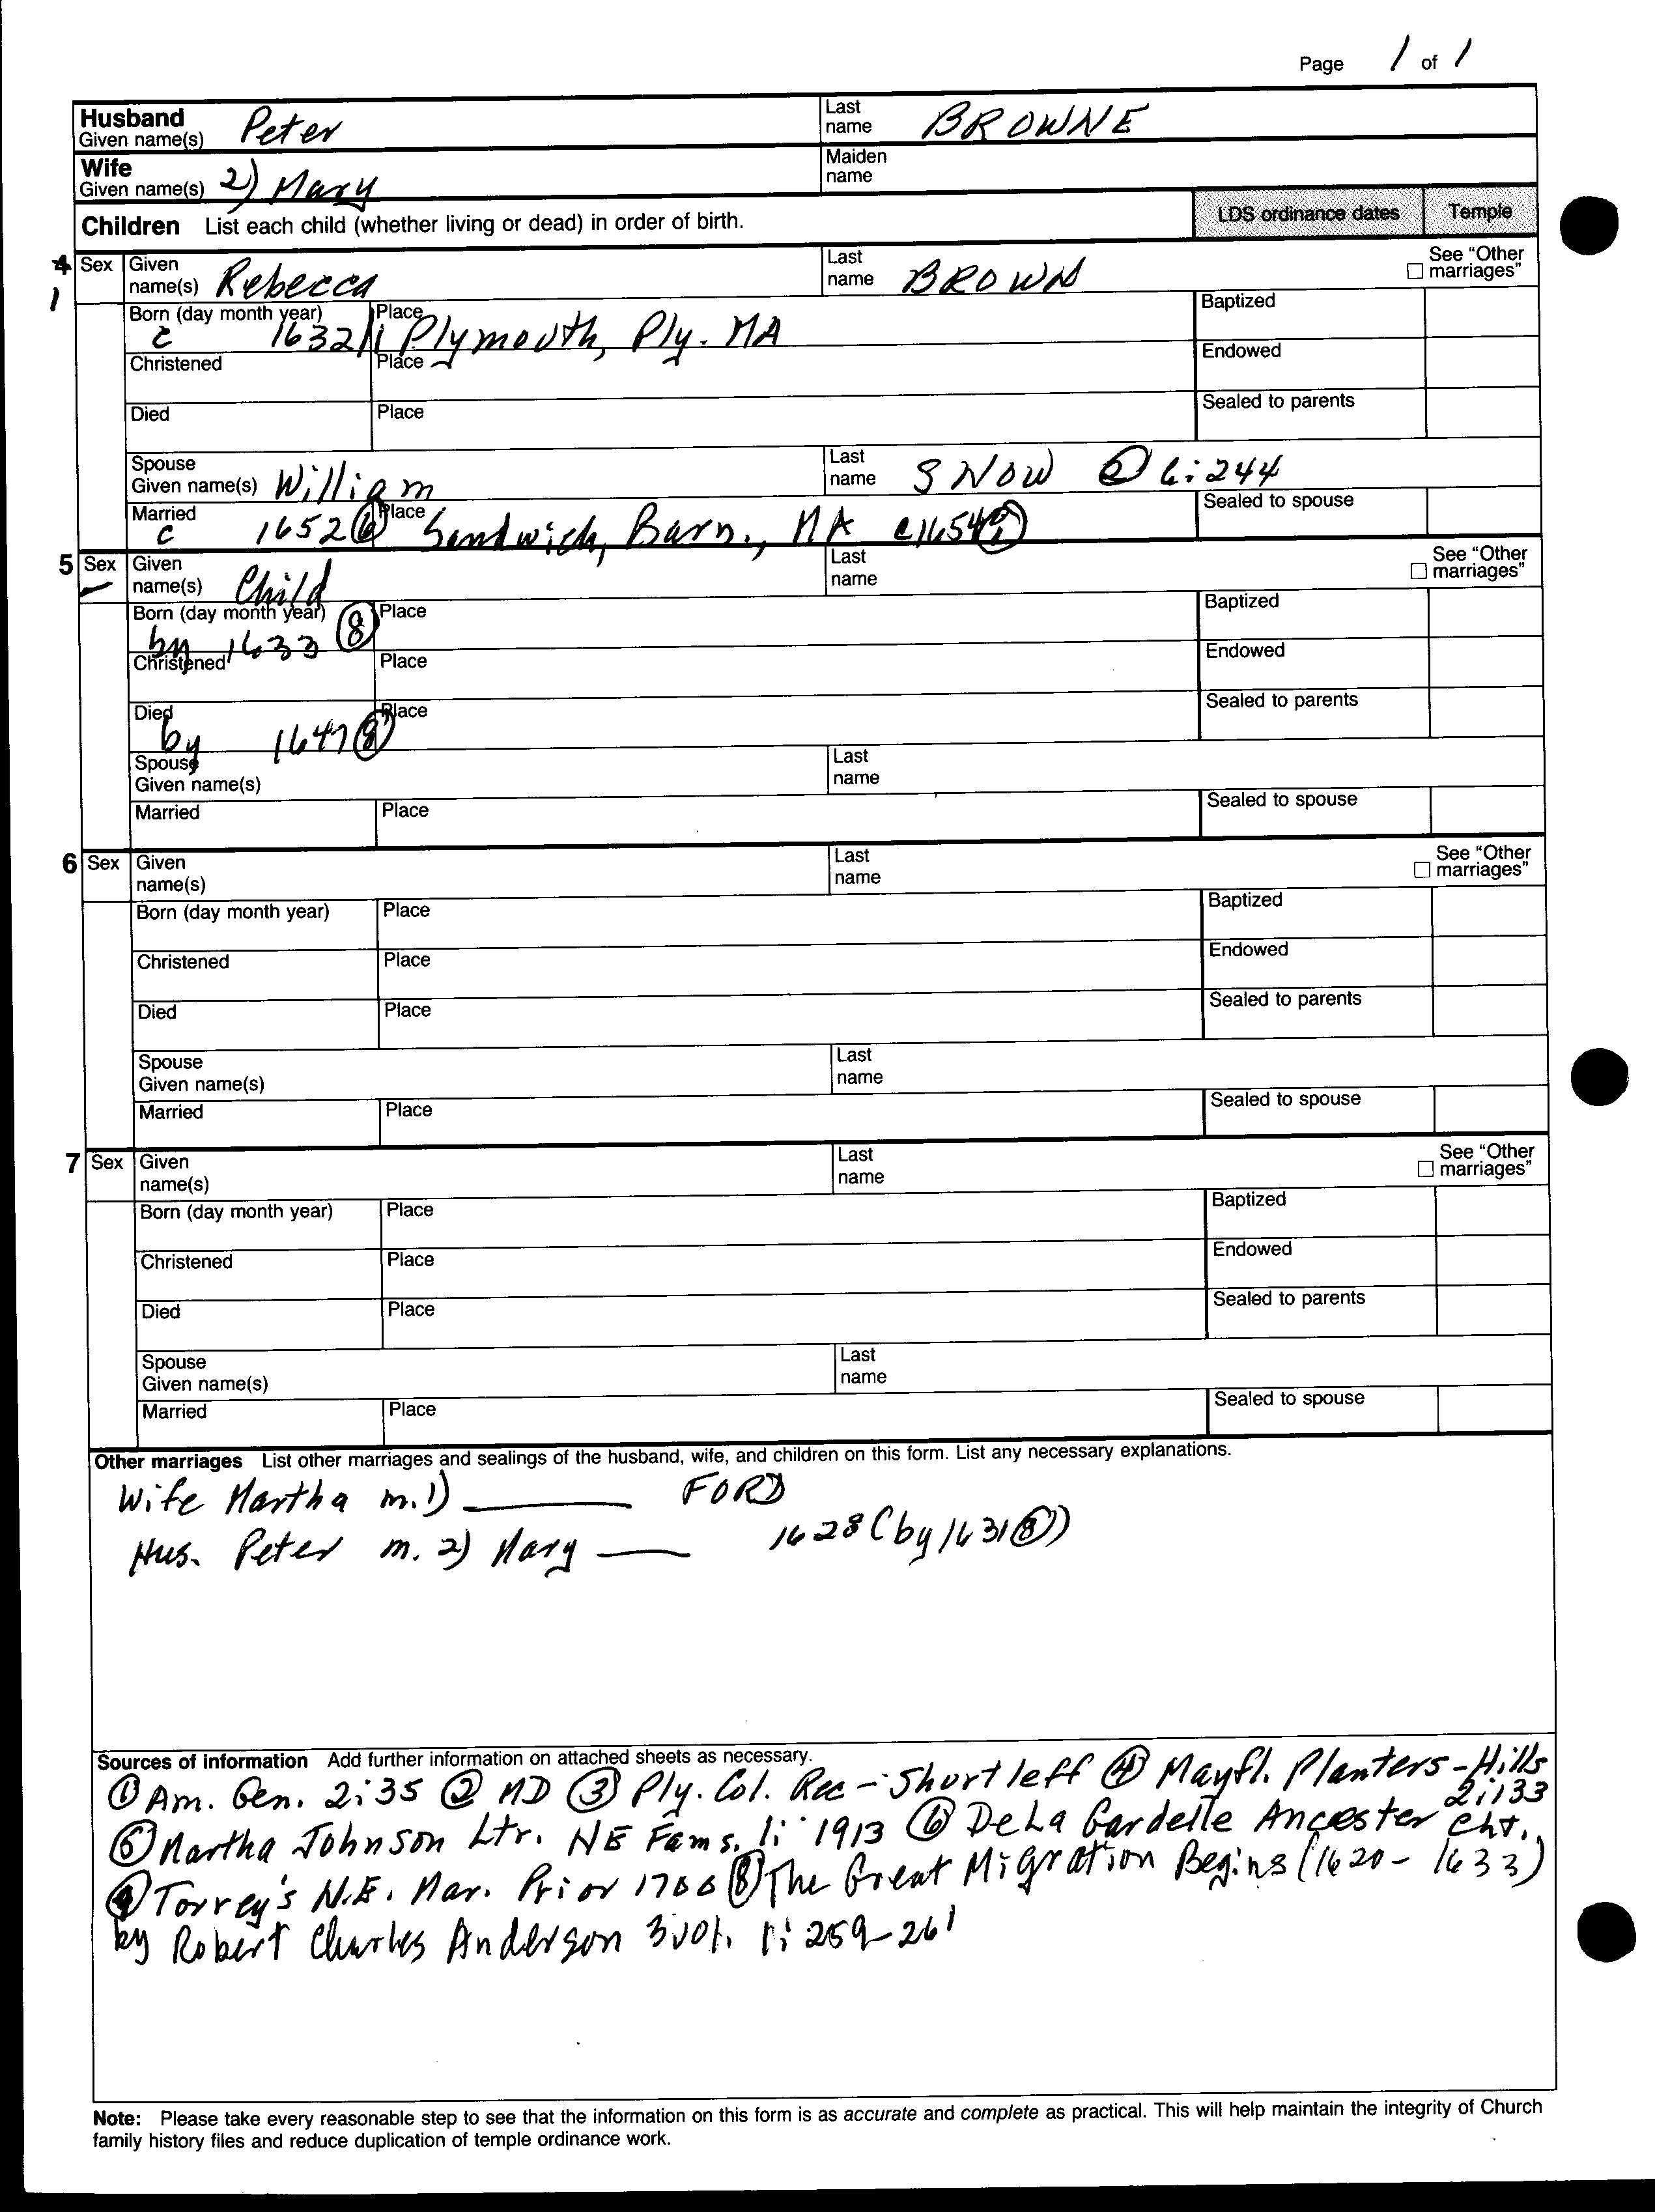 Page 1 of 1
Husband Given name(s) Peter Last name BROWNE
Wife Given name(s) 2) Mary Maiden name
Children List each child (whether living or dead) in order of birth. LDS ordinance dates Temple
4 1 Sex Given name(s) Rebecca Last name BROWN See "Other marriages"
Born (day month year) c 1632 Place Plymouth, Ply. MA Baptized
Christened Place Endowed
Died Place Sealed to parents
Spouse Given name(s) William Last name SNOW ⑥ 6:244
Married c 1652 ⑥ Place Sandwich, Barn., MA c1654
5 Sex Given name(s) Child Last name See "Other marriages"
Sealed to spouse
Born (day month year) by 1633 ⑧ Place Baptized
Christened Place Endowed
Died by 1647 ⑧ Place Sealed to parents
Spouse Given name(s) Last name
Married Place Sealed to spouse
6 Sex Given name(s) Last name See "Other marriages"
Born (day month year) Place Baptized
Christened Place Endowed
Died Place Sealed to parents
Spouse Given name(s) Last name
Married Place Sealed to spouse
7 Sex Given name(s) Last name See "Other marriages"
Born (day month year) Place Baptized
Christened Place Endowed
Died Place Sealed to parents
Spouse Given name(s) Last name
Married Place Sealed to spouse
Other marriages List other marriages and sealings of the husband, wife, and children on this form. List any necessary explanations.
Wife Martha m. 1) ____ FORD
Hus. Peter m. 2) Mary ____ 1628 (by 1631 ⑧)
Sources of information Add further information on attached sheets as necessary.
① Am. Gen. 2:35 ② MD ③ Ply. Col. Rec - Shurtleff ④ Mayfl. Planters - Hills 2:133
⑤ Martha Johnson Ltr. NE Fams. 1:1913 ⑥ De La Gardelle Ancester Cht.
Torrey's N.E. Mar. Prior 1700 ⑧ The Great Migration Begins (1620-1633)
by Robert Charles Anderson 3 vol. 1:259-261
Note: Please take every reasonable step to see that the information on this form is as accurate and complete as practical. This will help maintain the integrity of Church
family history files and reduce duplication of temple ordinance work.